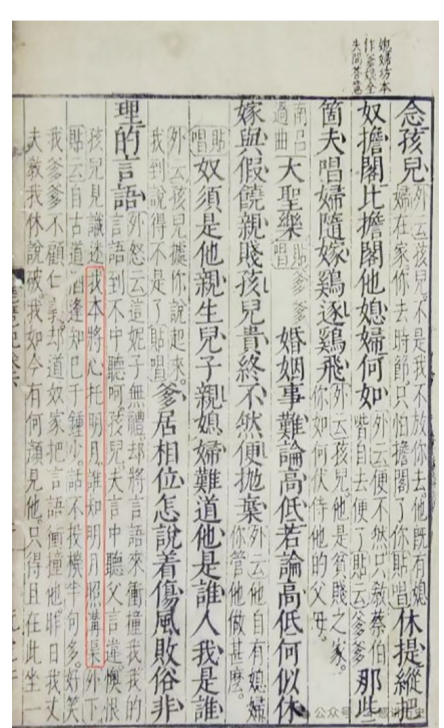 媳婦坊本
作爹媳全
失問答意
念孩兒外云孩兒。不是我不放你去。他既有媳婦在家。你去時節。只怕擔閣了你貼唱休提縱把
奴擔閣比擔閣他媳婦何如外云便不然只教蔡伯喈自去便了貼云爹爹那些
箇夫唱婦隨嫁鷄逐鷄飛外云孩兒。他是貧賤之家。你如何伏侍他的父母。
南呂過曲大聖樂貼唱爹爹婚姻事難論高低若論高低何似休
嫁與假饒親賤孩兒貴終不然便拋棄外云他自有媳婦你管他做甚麼。
貼唱奴須是他親生兒子親媳婦難道他是誰人我是誰
外云孩兒據你說起來。我到說得不是了貼唱爹居相位怎說着傷風敗俗非
理的言語外怒云這妮子無禮。却將言語來衝撞我。我的言語到不中聽呵。孩兒夫言中聽父言違懊恨
孩兒見識迷我本將心托明月。誰知明月照溝渠外下
貼云自古道酒逢知己千鍾少。話不投機半句多。好笑
我爹爹不顧仁義。却道奴家把言語衝撞他。昨日我丈
夫教我休說破我如今有何顏見他。只得且在此坐一
公众号